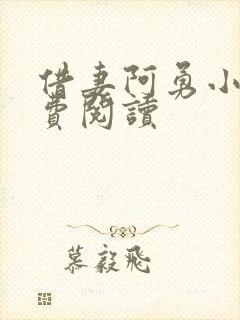 借妻阿勇小
費閱讀
慕毅飛